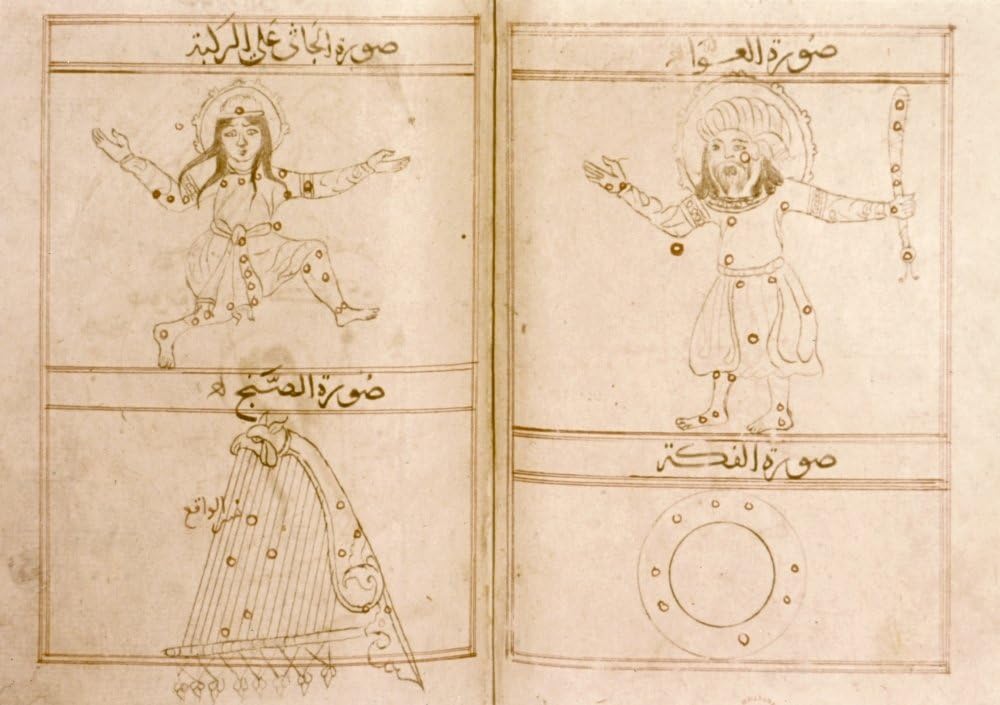 صورة العوا
صورة الفكة
صورة الجاثي على الركبة
صورة الصنج
نسر الواقع